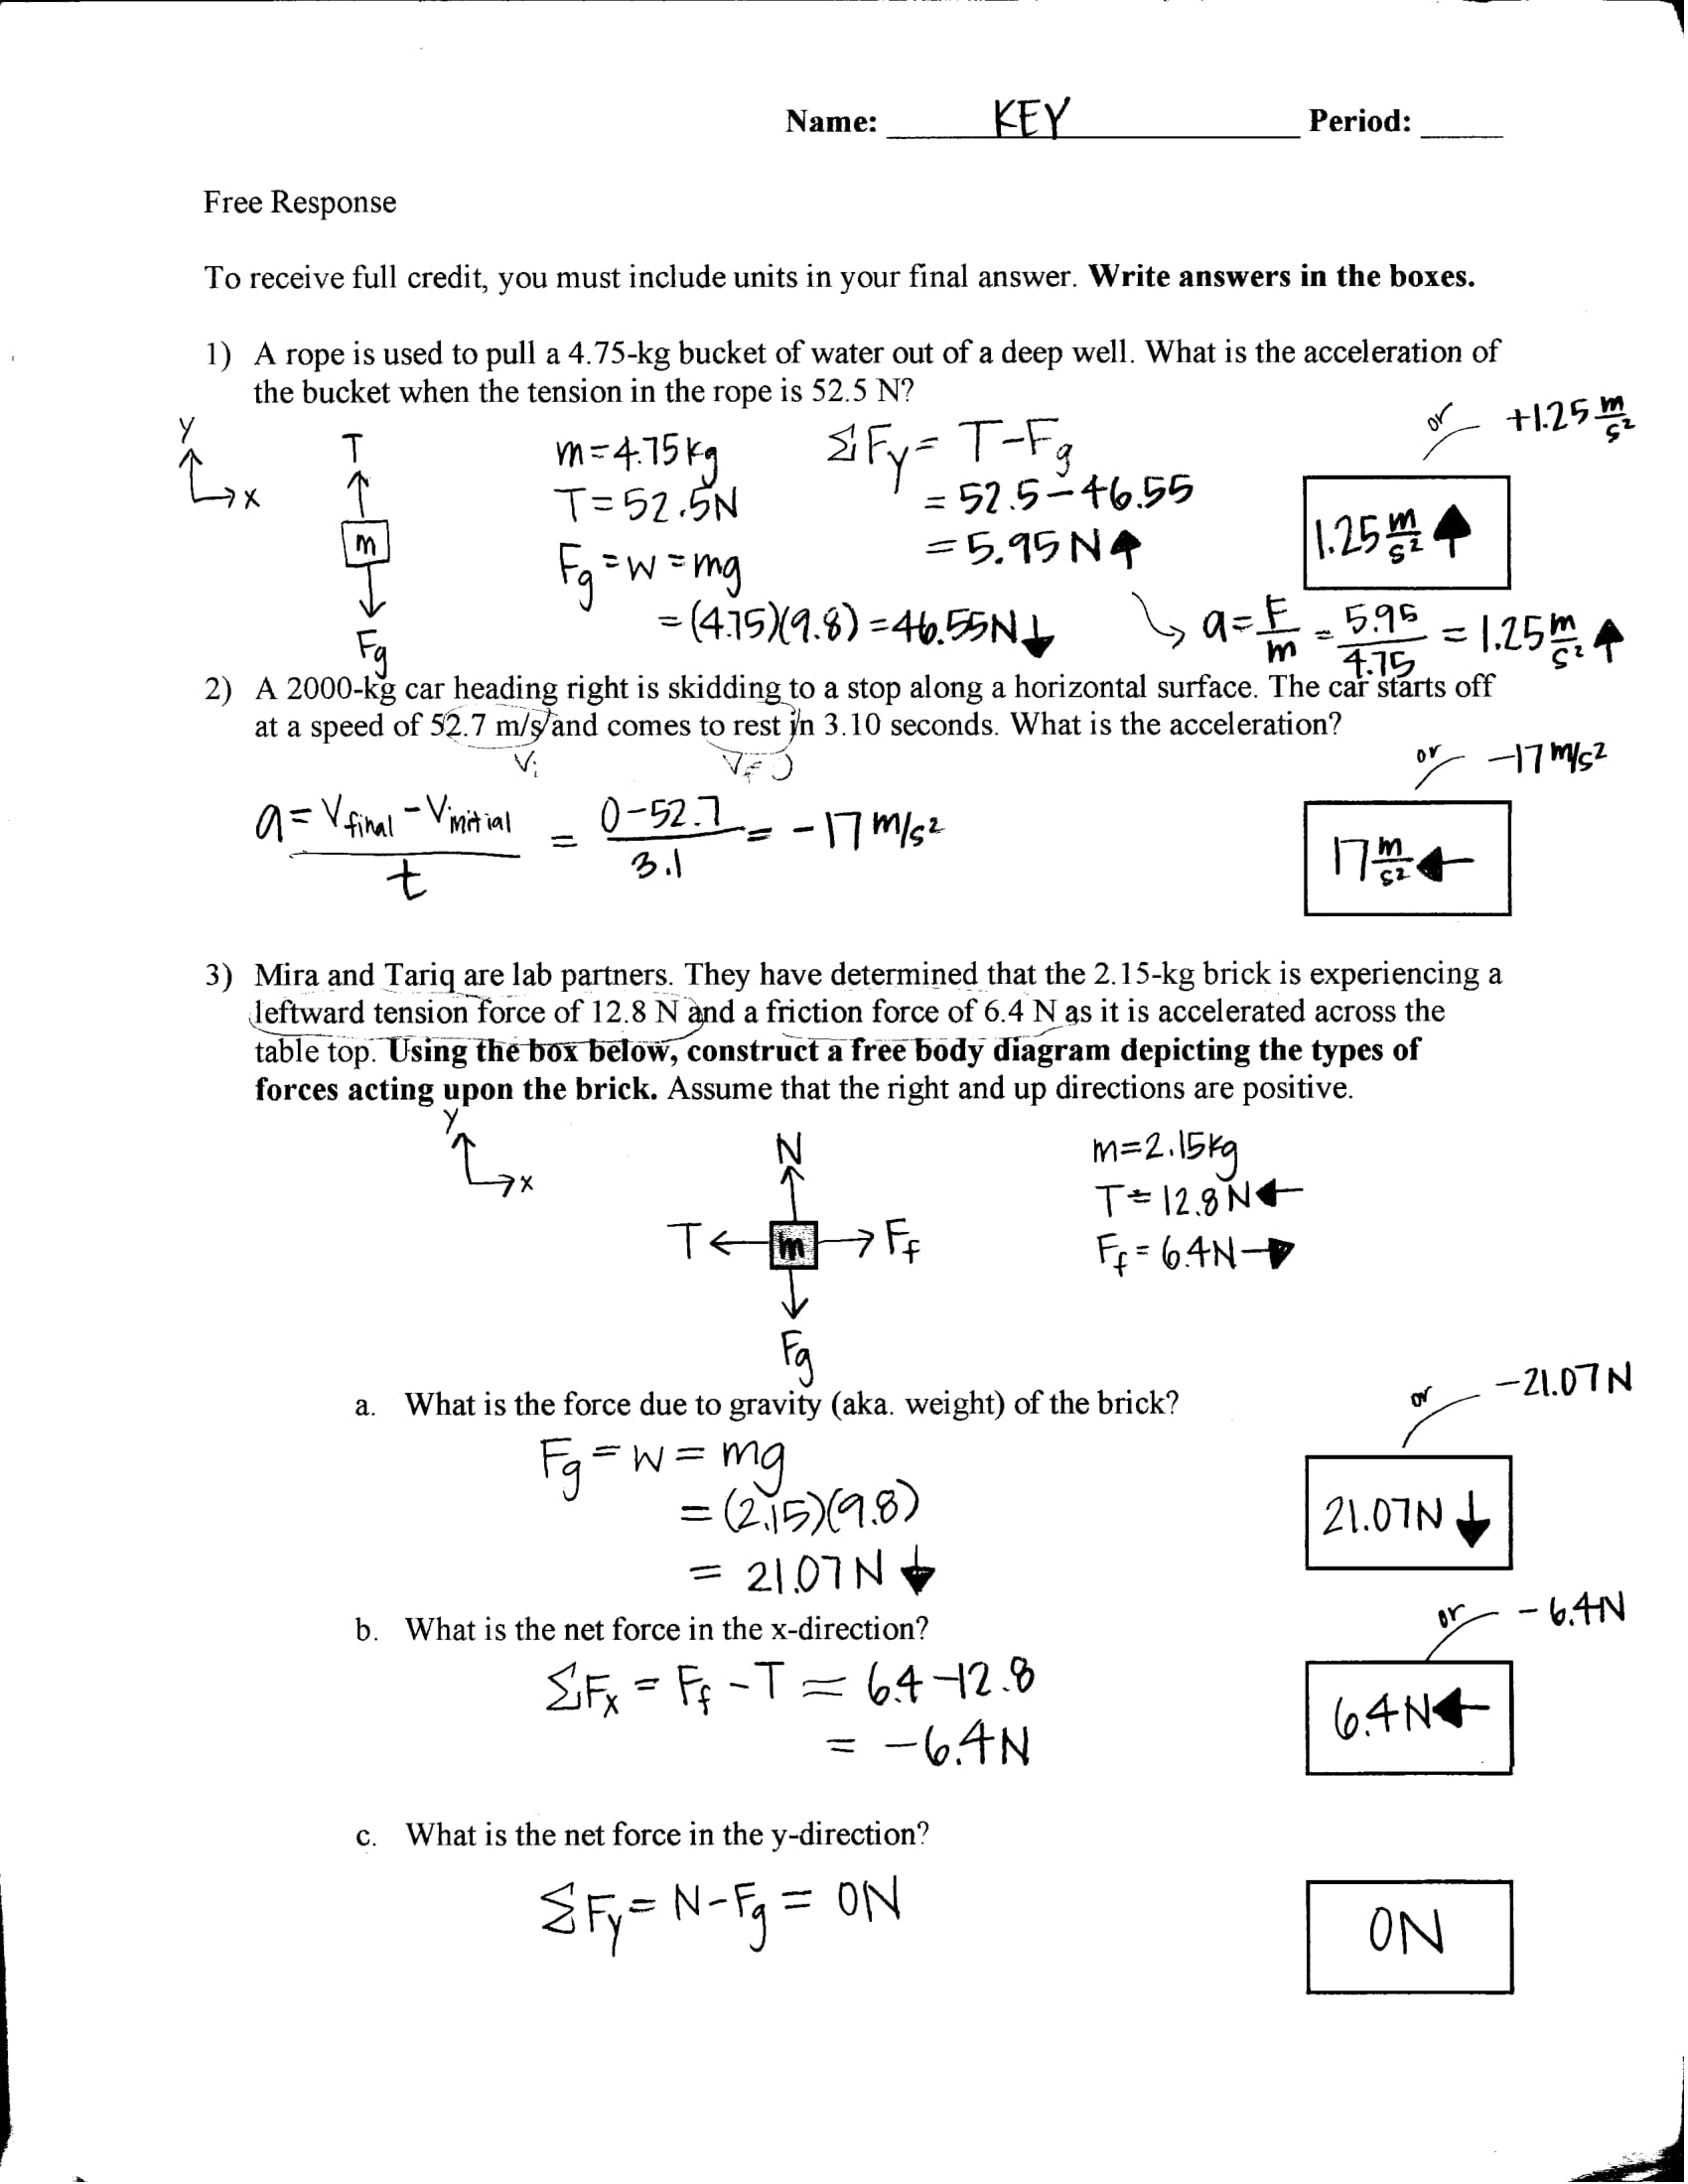 Name: KEY Period:
Free Response
To receive full credit, you must include units in your final answer. Write answers in the boxes.
1) A rope is used to pull a 4.75-kg bucket of water out of a deep well. What is the acceleration of
the bucket when the tension in the rope is 52.5 N?
or +1.25 m/s²
y
x
T
m
Fg
m=4.75kg
T=52.5N
Fg=w=mg
=(4.75)(9.8)=46.55N↓
ΣFy= T-Fg
= 52.5-46.55
=5.95N↑
1.25 m/s² ↑
a=F/m = 5.95/4.75 = 1.25 m/s² ↑
2) A 2000-kg car heading right is skidding to a stop along a horizontal surface. The car starts off
at a speed of 52.7 m/s and comes to rest in 3.10 seconds. What is the acceleration?
Vi
VF=0
or -17 m/s²
a= Vfinal - Vinitial / t = 0-52.7 / 3.1 = -17 m/s²
17 m/s² ←
3) Mira and Tariq are lab partners. They have determined that the 2.15-kg brick is experiencing a
leftward tension force of 12.8 N and a friction force of 6.4 N as it is accelerated across the
table top. Using the box below, construct a free body diagram depicting the types of
forces acting upon the brick. Assume that the right and up directions are positive.
y
x
N
T ← m → Ff
Fg
m=2.15kg
T=12.8N←
Ff=6.4N→
a. What is the force due to gravity (aka. weight) of the brick?
or -21.07N
Fg=w=mg
=(2.15)(9.8)
= 21.07N↓
21.07N↓
b. What is the net force in the x-direction?
or -6.4N
ΣFx = Ff - T = 6.4-12.8
= -6.4N
6.4N←
c. What is the net force in the y-direction?
ΣFy= N-Fg = 0N
0N